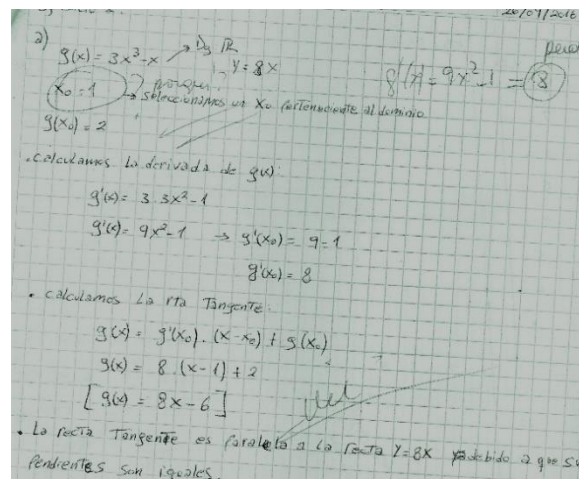 26/04/2016
a)
g(x) = 3x³-x → Dg ℝ
Y = 8x
g'(x) = 9x²-1 = 8
x₀ = 1 → seleccionamos un x₀ perteneciente al dominio
g(x₀) = 2
. calculamos La derivada de g(x):
g'(x) = 3 3x²-1
g'(x) = 9x²-1 → g'(x₀) = 9-1
g'(x₀) = 8
. calculamos La rta Tangente:
g(x) = g'(x₀).(x-x₀) + g(x₀)
g(x) = 8.(x-1)+2
[g(x) = 8x-6]
. La recta Tangente es paralela a la recta Y=8x debido a que su
pendientes son iguales.